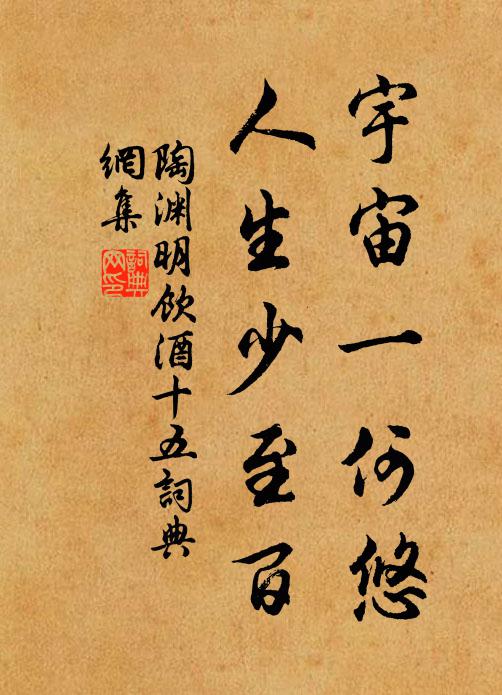 宇宙一何悠
人生少至百
陶渊明飲酒十五詞典
網集
詞典
网印